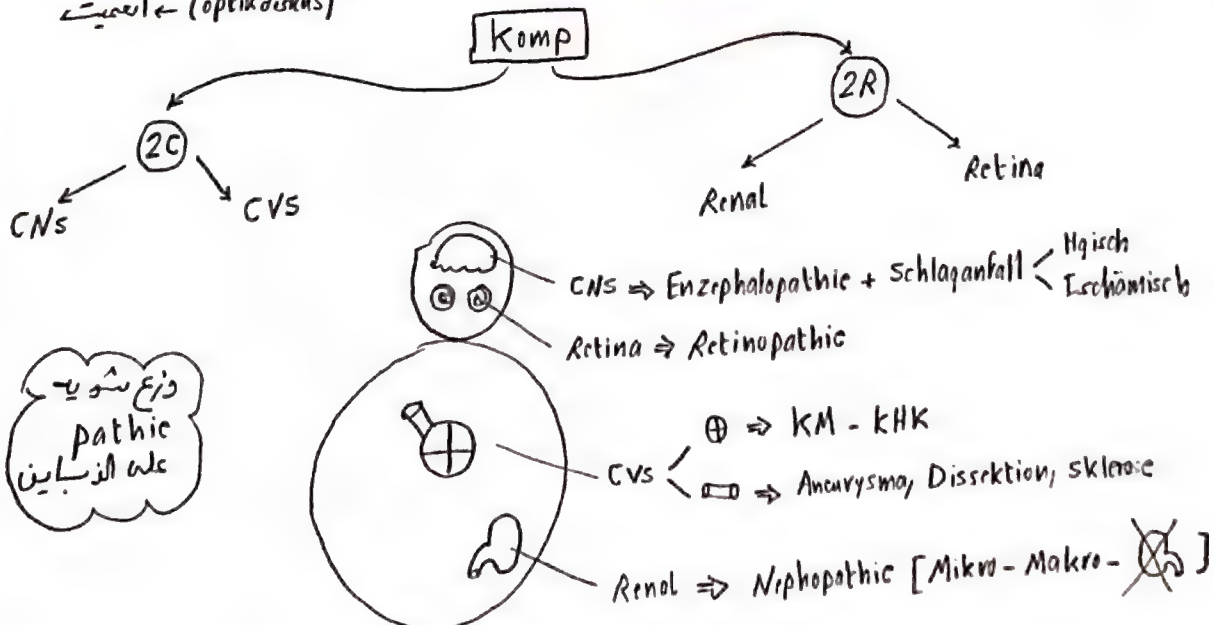 العميت ← (optikdiskus)
Komp
2C
2R
CNs
CVS
Renal
Retina
CNS ⇒ Enzephalopathie + Schlaganfall < Hgisch
Eschämisch
Retina ⇒ Retinopathie
وزع شوية
pathie
على الزباين
CVS < ⊕ ⇒ KM - KHK
⇒ Aneurysma, Dissektion, Sklerose
Renal ⇒ Nephopathie [Mikro - Makro - ]